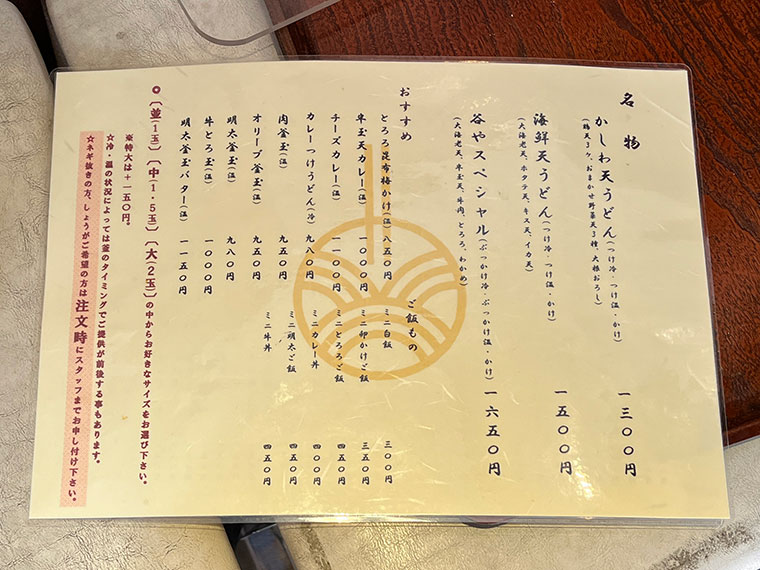 名物
かしわ天うどん(つけ冷・つけ温・かけ) 一三〇〇円
(鶏天3ケ、おまかせ野菜天3種、大根おろし)
海鮮天うどん(つけ冷・つけ温・かけ) 一五〇〇円
(大海老天、ホタテ天、キス天、イカ天)
谷やスペシャル(ぶっかけ冷・ぶっかけ温・かけ) 一六五〇円
(大海老天、半玉天、牛肉、とろろ、わかめ)
おすすめ
とろろ昆布梅かけ(温) 八五〇円
半玉天カレー(温) 一〇〇〇円
チーズカレー(温) 一一〇〇円
カレーつけうどん(冷) 九八〇円
肉釜玉(温) 九五〇円
オリーブ釜玉(温) 九五〇円
明太釜玉(温) 九八〇円
牛とろ玉(温) 一〇〇〇円
明太釜玉バター(温) 一一五〇円
ご飯もの
ミニ白飯 三〇〇円
ミニ卵かけご飯 三五〇円
ミニとろろご飯 四五〇円
ミニカレー丼 四〇〇円
ミニ明太ご飯 四五〇円
ミニ牛丼 四五〇円
◎〔並(1玉)〕〔中(1.5玉)〕〔大(2玉)〕の中からお好きなサイズをお選び下さい。
※特大は+一五〇円。
☆冷・温の状況によっては釜のタイミングでご提供が前後する事もあります。
☆ネギ抜きの方、しょうがご希望の方は注文時にスタッフまでお申し付け下さい。